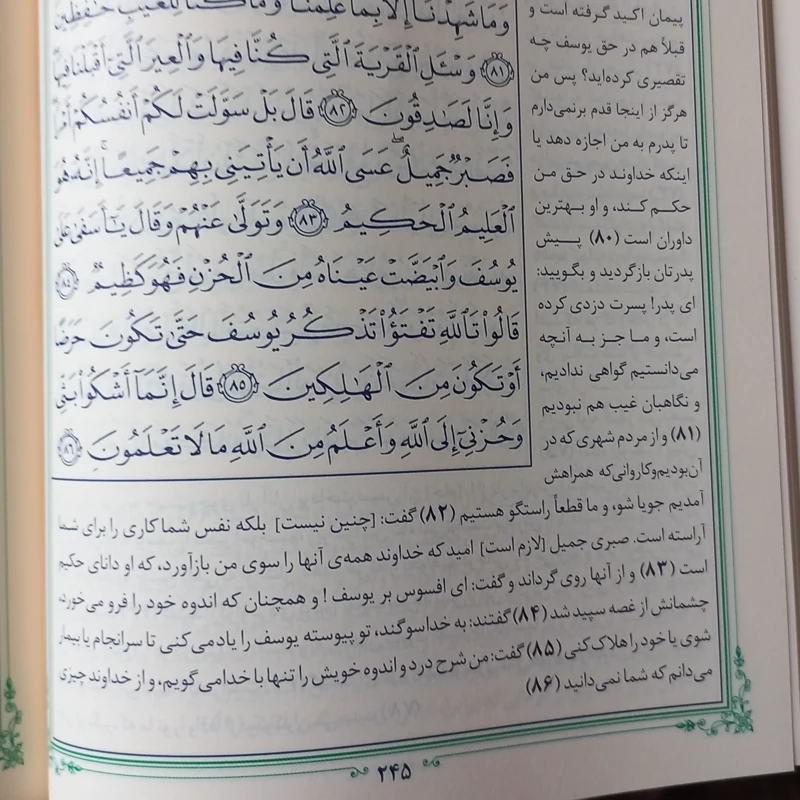 وَمَا شَهِدْنَا إِلَّا بِمَا عَلِمْنَا وَمَا كُنَّا لِلْغَيْبِ حَٰفِظِينَ
﴿٨١﴾ وَسْـَٔلِ ٱلْقَرْيَةَ ٱلَّتِى كُنَّا فِيهَا وَٱلْعِيرَ ٱلَّتِىٓ أَقْبَلْنَا فِيهَا
وَإِنَّا لَصَٰدِقُونَ ﴿٨٢﴾ قَالَ بَلْ سَوَّلَتْ لَكُمْ أَنفُسُكُمْ أَمْرًا
فَصَبْرٌ جَمِيلٌ ۖ عَسَى ٱللَّهُ أَن يَأْتِيَنِى بِهِمْ جَمِيعًا ۚ إِنَّهُۥ هُوَ
ٱلْعَلِيمُ ٱلْحَكِيمُ ﴿٨٣﴾ وَتَوَلَّىٰ عَنْهُمْ وَقَالَ يَٰٓأَسَفَىٰ عَلَىٰ
يُوسُفَ وَٱبْيَضَّتْ عَيْنَاهُ مِنَ ٱلْحُزْنِ فَهُوَ كَظِيمٌ ﴿٨٤﴾
قَالُوا۟ تَٱللَّهِ تَفْتَؤُا۟ تَذْكُرُ يُوسُفَ حَتَّىٰ تَكُونَ حَرَضًا
أَوْ تَكُونَ مِنَ ٱلْهَٰلِكِينَ ﴿٨٥﴾ قَالَ إِنَّمَآ أَشْكُوا۟ بَثِّى
وَحُزْنِىٓ إِلَى ٱللَّهِ وَأَعْلَمُ مِنَ ٱللَّهِ مَا لَا تَعْلَمُونَ ﴿٨٦﴾
پیمان اکید گرفته است و
قبلاً هم در حق یوسف چه
تقصیری کرده‌اید؟ پس من
هرگز از اینجا قدم برنمی‌دارم
تا پدرم به من اجازه دهد یا
اینکه خداوند در حق من
حکم کند، و او بهترین
داوران است (۸۰) پیش
پدرتان بازگردید و بگویید:
ای پدر! پسرت دزدی کرده
است، و ما جز به آنچه
می‌دانستیم گواهی ندادیم،
و نگاهبان غیب هم نبودیم
(۸۱) و از مردم شهری که در
آن بودیم و کاروانی که همراهش
آمدیم جویا شو، و ما قطعاً راستگو هستیم (۸۲) گفت: [چنین نیست] بلکه نفس شما کاری را برای شما
آراسته است. صبری جمیل [لازم است] امید که خداوند همه‌ی آنها را سوی من بازآورد، که او دانای حکیم
است (۸۳) و از آنها روی گرداند و گفت: ای افسوس بر یوسف! و همچنان که اندوه خود را فرو می‌خورد،
چشمانش از غصه سپید شد (۸۴) گفتند: به خدا سوگند، تو پیوسته یوسف را یاد می‌کنی تا سرانجام یا بیمار
شوی یا خود را هلاک کنی (۸۵) گفت: من شرح درد و اندوه خویش را تنها با خدا می گویم، و از خداوند چیزی
می‌دانم که شما نمی‌دانید (۸۶)
۲۴۵